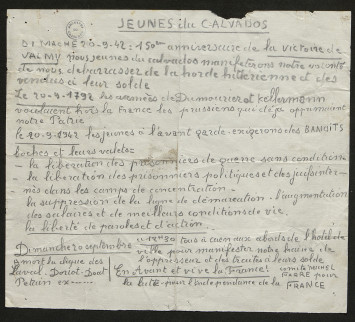 JEUNES du CALVADOS
DIMANCHE 20-9-42 : 150e anniversaire de la victoire de
VALMY nous jeunes du calvados manifesterons notre volonté
de nous débarrasser de la horde hitlérienne et des
vendus à leur solde
Le 20-9-1792 les armées de Dumouriez et Kellermann
hors la France les prussiens qui déjà
notre Patrie
Le 20-9-1942 les jeunes à l'avant garde exigerons des BANDITS
boches et leurs valets :
- la libération des prisonniers de guerre sans conditions
- la libération des prisonniers politiques et des
dans les camps de concentration -
- la suppression de la ligne de démarcation - l'augmentation
des salaires et de meilleurs conditions de vie.
- la liberté de paroles et d'action.
Dimanche 20 septembre à tous à caen aux abords de l'hotel de
ville pour manifester notre haine de
à mort la clique des l'oppresseur et des traitres à leurs solde
Laval - Doriot - En Avant et vive la France !
Pétain ex la lutte pour l'indépendance de la FRANCE